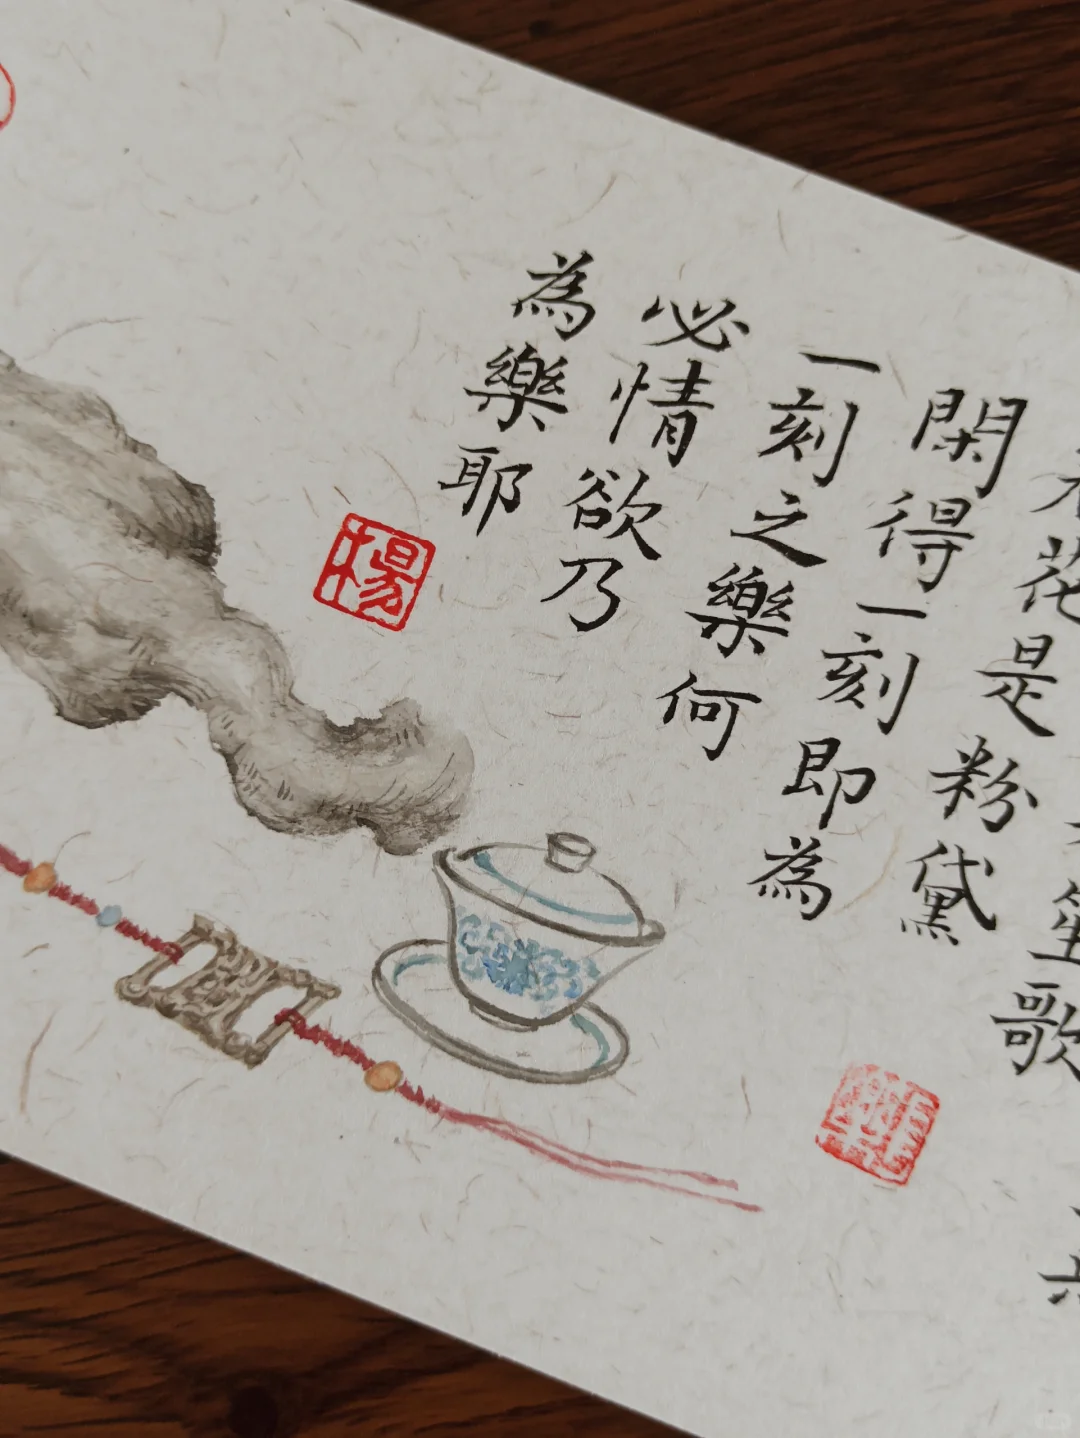 笙歌
花是粉黛
閑得一刻即為
一刻之樂何
必情欲乃
為樂耶
楊